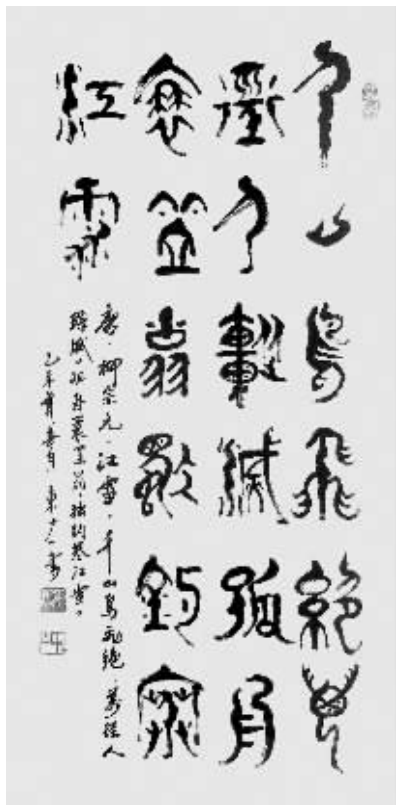 千山鳥飛絕萬
徑人蹤滅孤舟
蓑笠翁獨釣寒
江雪
唐·柳宗元·江雪·千山鳥飛絕·萬徑人
踪滅·孤舟蓑笠翁·獨釣寒江雪·